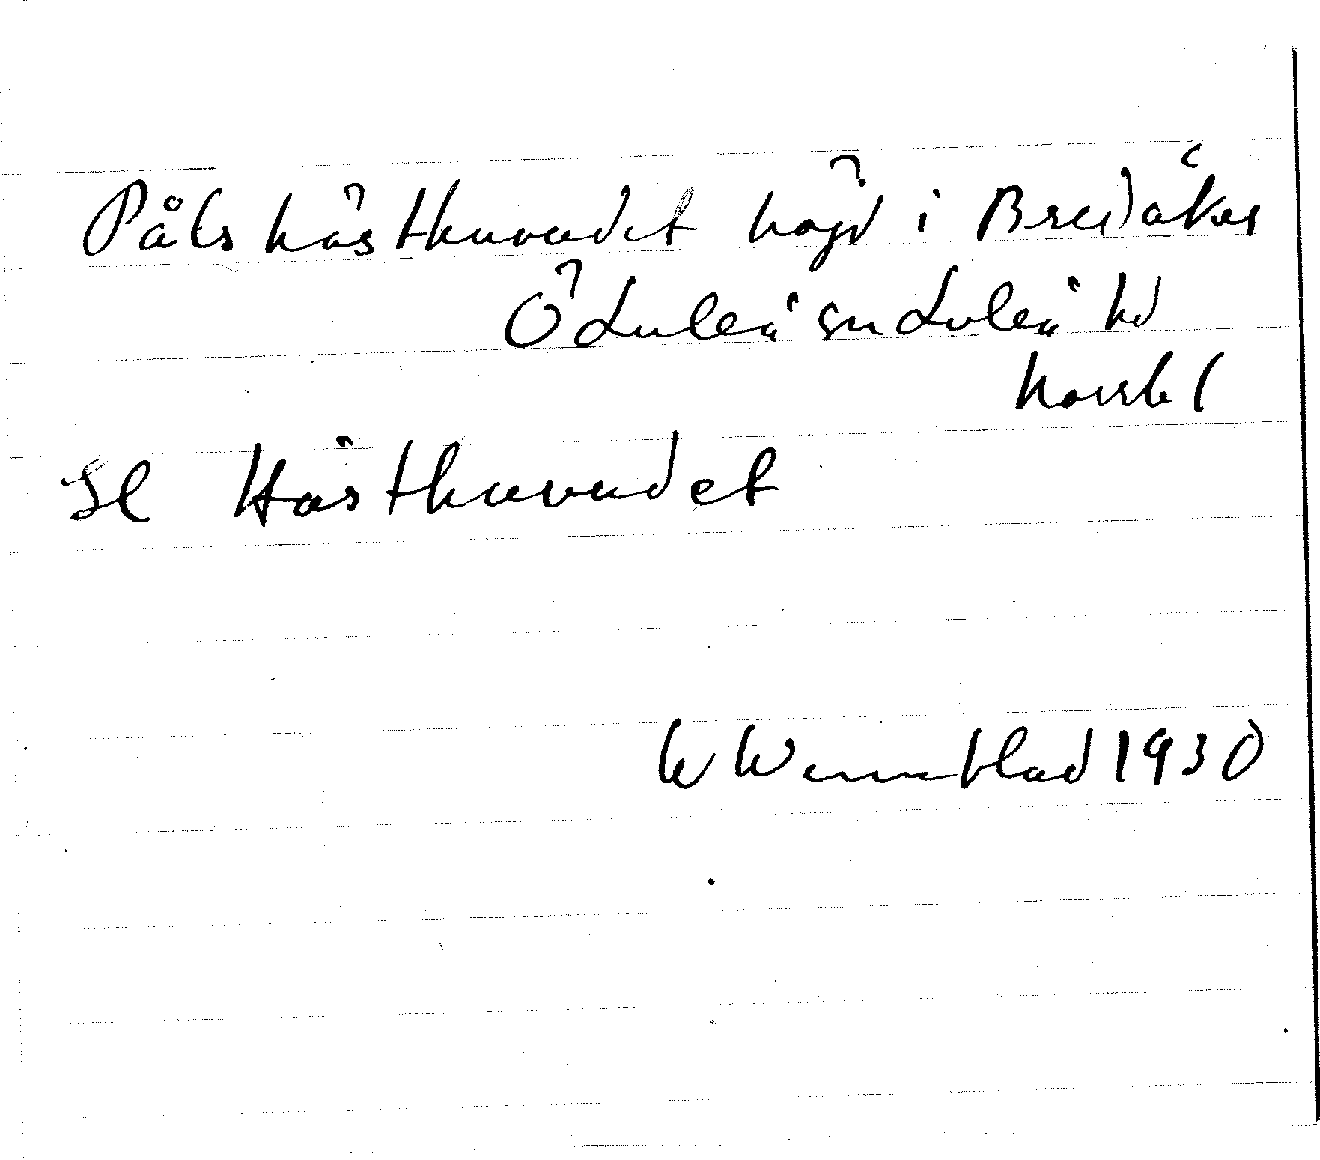 Pålshästhuvudet höjd i Bredåker
Ö Luleå sn Luleå hd
Norrb l
Se Hästhuvudet
W Wennblad 1930